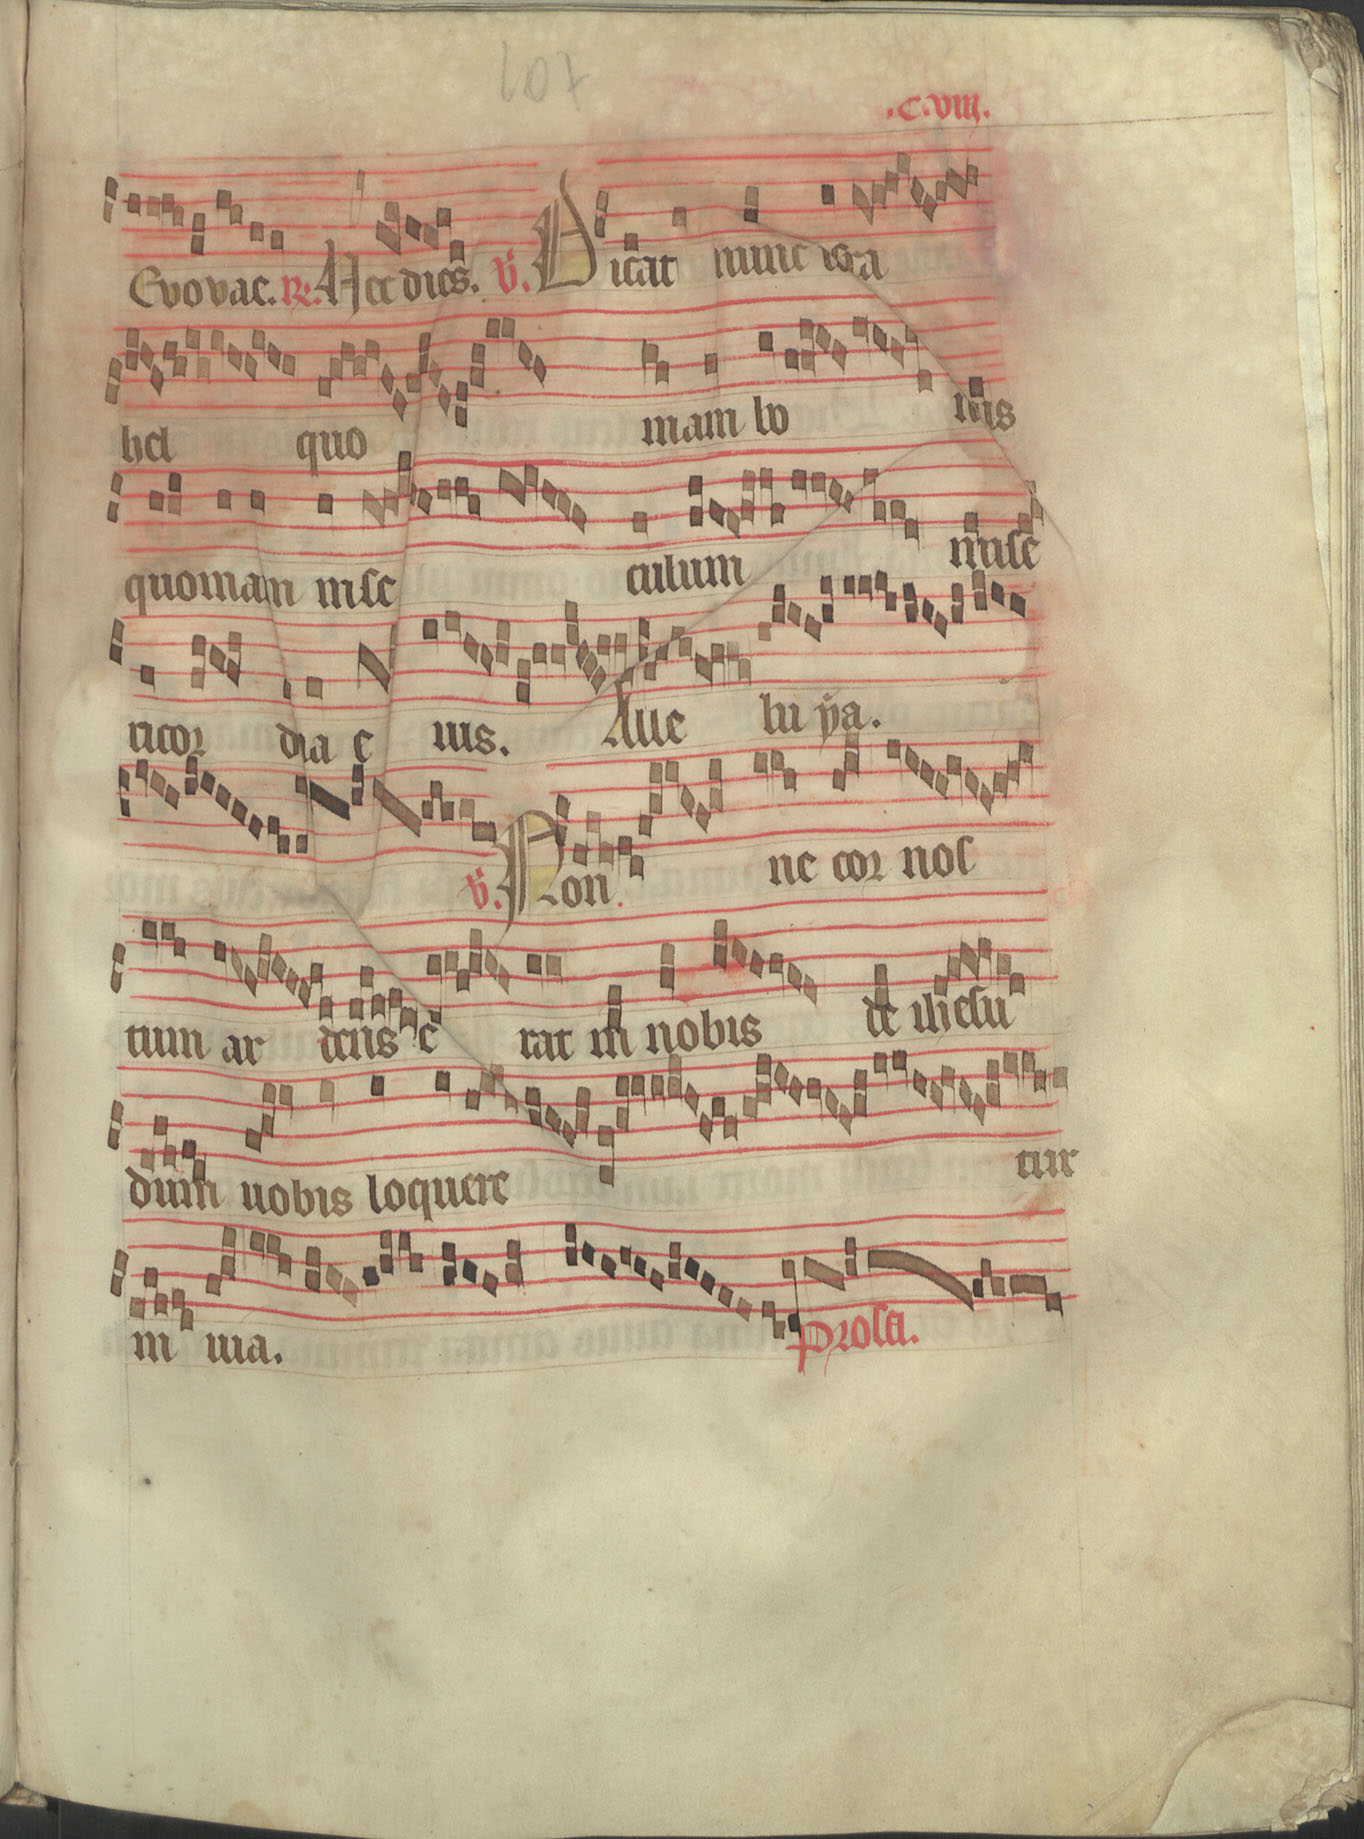 107
.C.VIII.
Evovae. R. Hec dies. V. Dicat nunc isra
hel quo niam bo nus
quoniam mise culum mise
ricor dia e ius. Alle lu ya.
V. Non ne cor nos
trum ar dens e rat in nobis de ihesu
dum nobis loquere tur
in uia. Prosa.